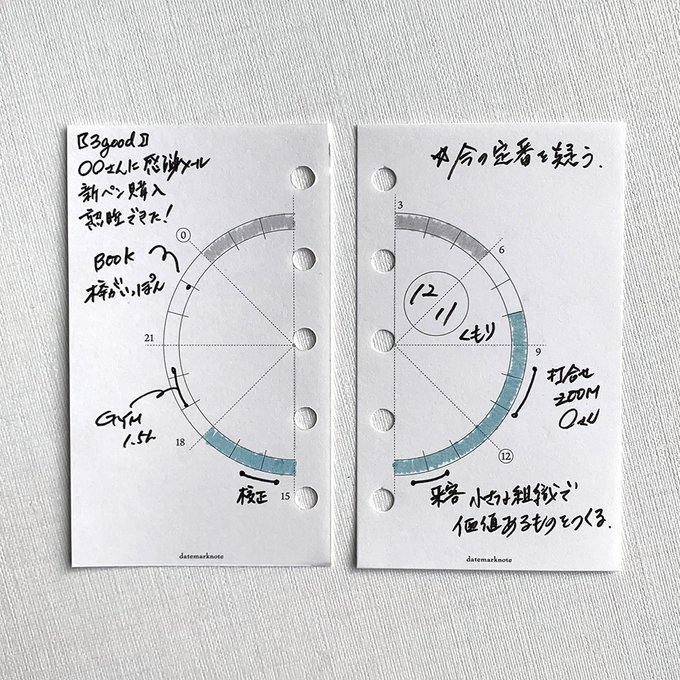 【3good】
〇〇さんに感謝メール
新ペン購入
熟睡できた!
0
BOOK
棒がいっぽん
21
GYM
1.5h
18
校正
15
datemarknote
☆今の定番を疑う.
3
6
12
11
くもり
9
打合せ
ZOOM
Oさん
12
来客
小さな組織で
価値あるものをつくる.
datemarknote